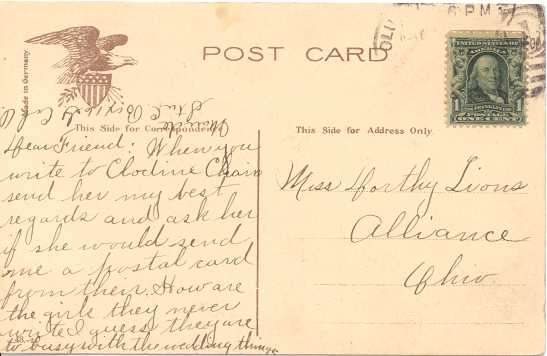 POST CARD
Made in Germany.
This Side for Correspondence
This Side for Address Only.
6 PM
UNITED STATES OF AMERICA
1 1
FRANKLIN
POSTAGE
ONE CENT
Dear Friend: When you
write to Clodine Chain
send her my best
regards and ask her
if she would send
me a postal card
from their. How are
the girls they never
write I guess they are
to busy with the wedding things
Miss Dorthy Lions
Alliance
Ohio.